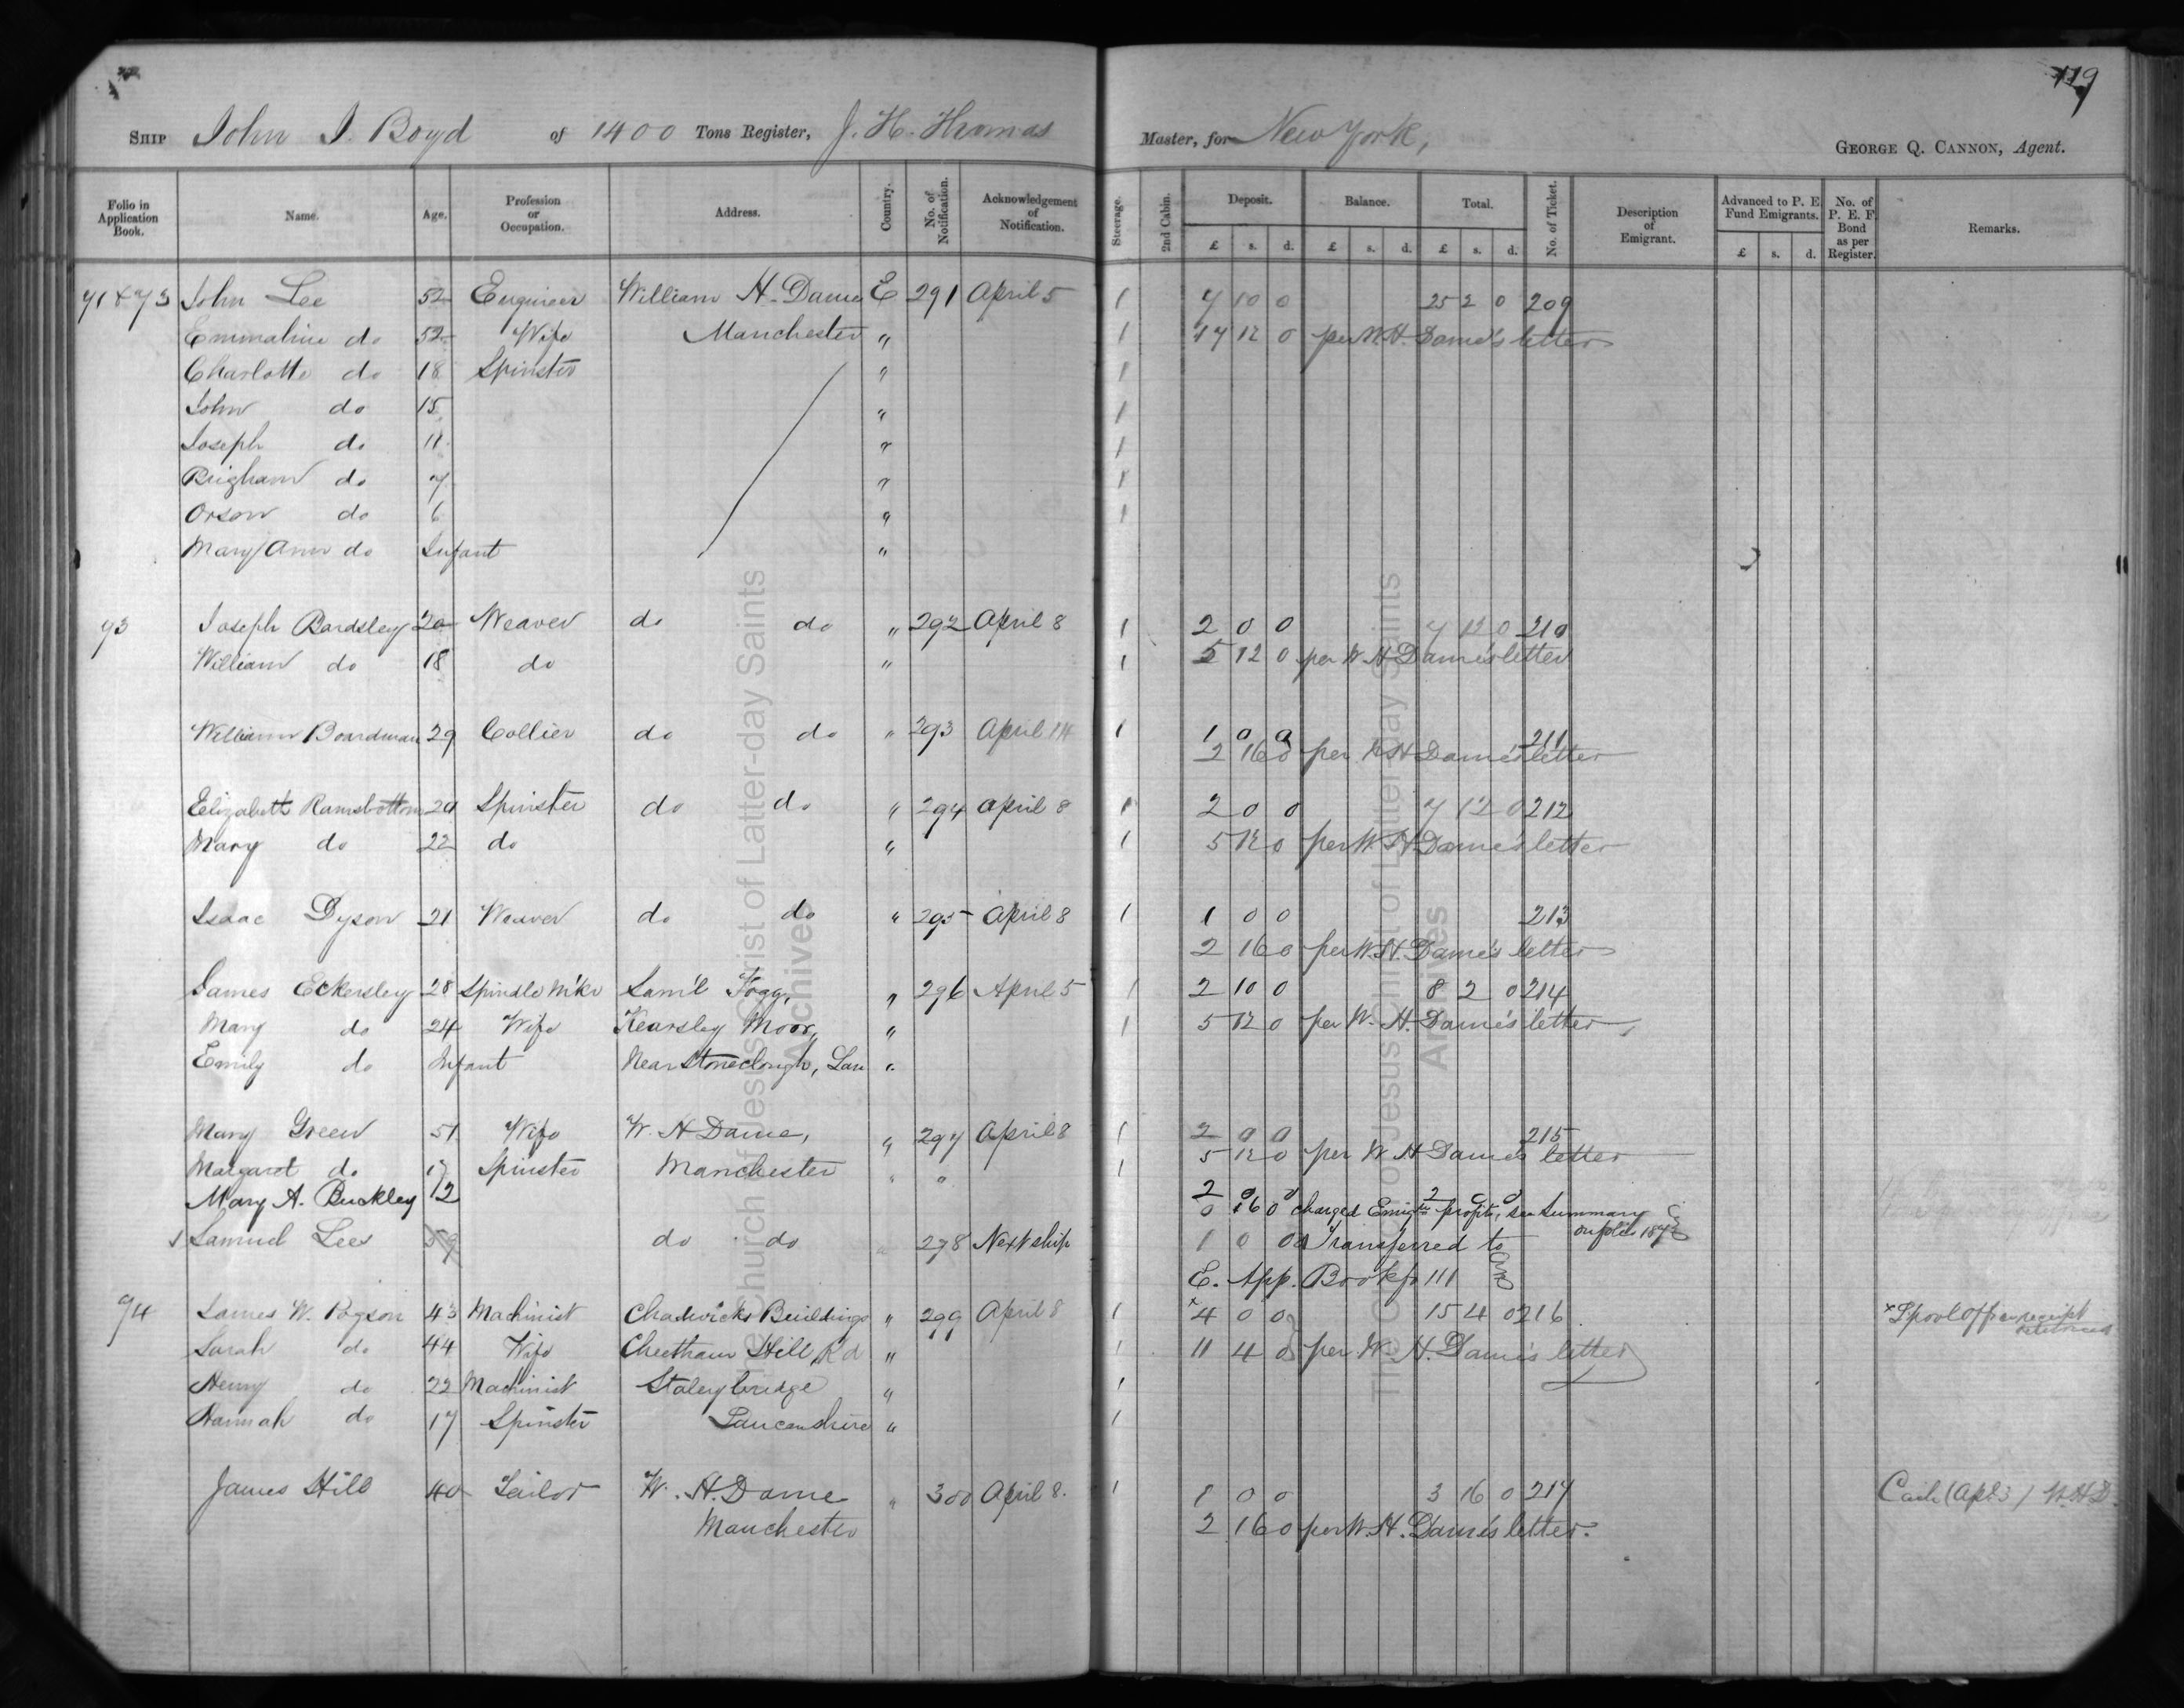 119
SHIP John J. Boyd of 1400 Tons Register, J. H. Thomas Master, for New York, GEORGE Q. CANNON, Agent.
Folio in Application Book. Name. Age. Profession or Occupation. Address. Country. No. of Notification. Acknowledgement of Notification. Steerage. 2nd Cabin. Deposit. Balance. Total. No. of Ticket. Description of Emigrant. Advanced to P. E. Fund Emigrants. No. of P. E. F. Bond as per Register. Remarks.
£ s. d. £ s. d. £ s. d. £ s. d.
91 & 93 John Lee 52 Engineer William H. Dame E 291 April 5 1 7 10 0 25 2 0 209
Emmaline do 52 Wife Manchester " 1 17 12 0 per W. H. Dame's letter
Charlotte do 18 Spinster " 1
John do 15 " 1
Joseph do 11 " 1
Brigham do 7 " 1
Orson do 6 " 1
Mary Ann do Infant "
93 Joseph Bardsley 20 Weaver do do " 292 April 8 1 2 0 0 7 12 0 210
William do 18 do " 1 5 12 0 per W. H Dame's letter
William Boardman 29 Collier do do " 293 April 14 1 1 0 0 211
2 16 0 per W H Dame's letter
Elizabeth Ramsbottom 20 Spinster do do " 294 April 8 1 2 0 0 7 12 0 212
Mary do 22 do " 1 5 12 0 per W. H Dame's letter
Isaac Dyson 21 Weaver do do " 295 April 8 1 1 0 0 213
2 16 0 per W. H. Dame's letter
James Eckersley 28 Spindle M'kr Sam'l Fogg, " 296 April 5 1 2 10 0 8 2 0 214
Mary do 24 Wife Kearsley Moor, " 1 5 12 0 per W. H. Dame's letter
Emily do Infant Near Stoneclough, Lan "
Mary Green 51 Wife W. H Dame, " 297 April 8 1 2 0 0 215
Margaret do 17 Spinster Manchester " " 1 5 12 0 per W H Dame's letter
Mary A. Buckley 12 2 0 0 2 0 0
0 16 0 charged Emigtn profits, see Summary on folio
Samuel Lees 59 do do " 298 Next ship 1 0 0 Transferred to
E. App. Book fo 111
94 James W. Pogson 43 Machinist Chadwicks Buildings " 299 April 8 1 x4 0 0 15 4 0 216 xL'pool Office receipt
Sarah do 44 Wife Cheetham Hill Rd " 1 11 4 0 per W. H. Dame's letter
Henry do 22 Machinist Staleybridge " 1
Hannah do 17 Spinster Lancashire " 1
James Hill 40 Tailor W. H. Dame " 300 April 8. 1 1 0 0 3 16 0 217 Cash (Apl 3) W. H D.
Manchester 2 16 0 per W. H. Dame's letter.
The Church of Jesus Christ of Latter-day Saints
Archives
The Church of Jesus Christ of Latter-day Saints
Archives